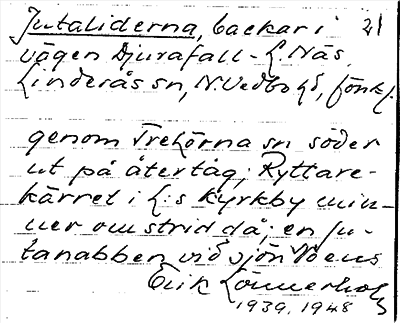 Jutaliderna, backar i 21
vägen Djurafall - L. Näs,
Linderås sn, N. Vedbo hd, Jönk l.
genom Trehörna sn söder
ut på återtåg; Ryttare-
kärret i L:s kyrkby min-
ner om strid då; en Ju-
tanabben vid sjön Noens
Erik Lönnerholm
1939, 1948